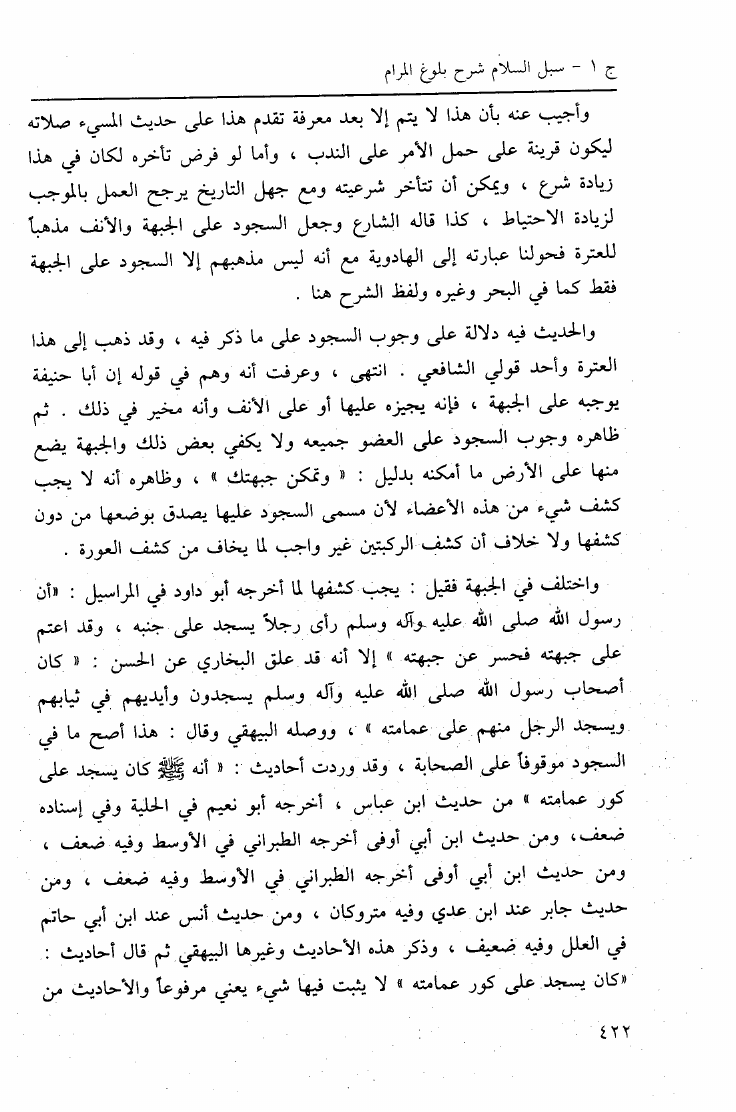 ج ١ - سبل السلام شرح بلوغ المرام
وأجيب عنه بأن هذا لا يتم إلا بعد معرفة تقدم هذا على حديث المسيء صلاته
ليكون قرينة على حمل الأمر على الندب ، وأما لو فرض تأخره لكان في هذا
زيادة شرع ، ويمكن أن تتأخر شرعيته ومع جهل التاريخ يرجح العمل بالموجب
لزيادة الاحتياط ، كذا قاله الشارع وجعل السجود على الجبهة والأنف مذهباً
للعترة فحولنا عبارته إلى الهادوية مع أنه ليس مذهبهم إلا السجود على الجبهة
فقط كما في البحر وغيره ولفظ الشرح هنا .
والحديث فيه دلالة على وجوب السجود على ما ذكر فيه ، وقد ذهب إلى هذا
العترة وأحد قولي الشافعي . انتهى ، وعرفت أنه وهم في قوله إن أبا حنيفة
يوجبه على الجبهة ، فإنه يجيزه عليها أو على الأنف وأنه مخير في ذلك . ثم
ظاهره وجوب السجود على العضو جميعه ولا يكفي بعض ذلك والجبهة يضع
منها على الأرض ما أمكنه بدليل : « وتمكن جبهتك » ، وظاهره أنه لا يجب
كشف شيء من هذه الأعضاء لأن مسمى السجود عليها يصدق بوضعها من دون
كشفها ولا خلاف أن كشف الركبتين غير واجب لما يخاف من كشف العورة .
واختلف في الجبهة فقيل : يجب كشفها لما أخرجه أبو داود في المراسيل : «أن
رسول الله صلى الله عليه وآله وسلم رأى رجلاً يسجد على جنبه ، وقد اعتم
على جبهته فحسر عن جبهته » إلا أنه قد علق البخاري عن الحسن : « كان
أصحاب رسول الله صلى الله عليه وآله وسلم يسجدون وأيديهم في ثيابهم
ويسجد الرجل منهم على عمامته » ، ووصله البيهقي وقال : هذا أصح ما في
السجود موقوفاً على الصحابة ، وقد وردت أحاديث : « أنه ﷺ كان يسجد على
كور عمامته » من حديث ابن عباس ، أخرجه أبو نعيم في الحلية وفي إسناده
ضعف، ومن حديث ابن أبي أوفى أخرجه الطبراني في الأوسط وفيه ضعف ،
ومن حديث ابن أبي أوفى أخرجه الطبراني في الأوسط وفيه ضعف ، ومن
حديث جابر عند ابن عدي وفيه متروكان ، ومن حديث أنس عند ابن أبي حاتم
في العلل وفيه ضعيف ، وذكر هذه الأحاديث وغيرها البيهقي ثم قال أحاديث :
«كان يسجد على كور عمامته » لا يثبت فيها شيء يعني مرفوعاً والأحاديث من
٤٢٢